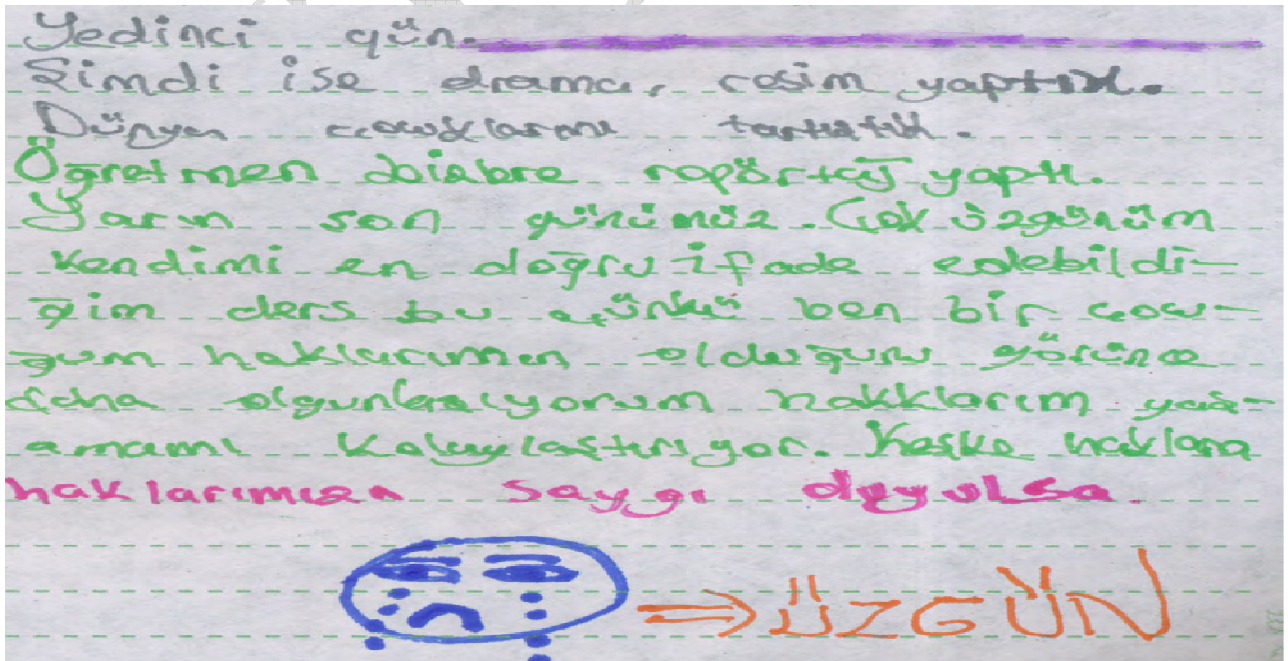 Yedinci gün.
Şimdi ise drama, resim yaptık.
Dünya çocuklarını tartıştık.
Öğretmen bizlere ropörtaj yaptı.
Yarın son günümüz. Çok üzgünüm
Kendimi en doğru ifade edebildi-
ğim ders bu çünkü ben bir çocu-
ğum haklarımın olduğunu görünce
daha olgunlaşıyorum hakklarım yaş-
amamı kolaylaştırıyor. Keşke
haklarımıza saygı duyulsa.
ÜZGÜN